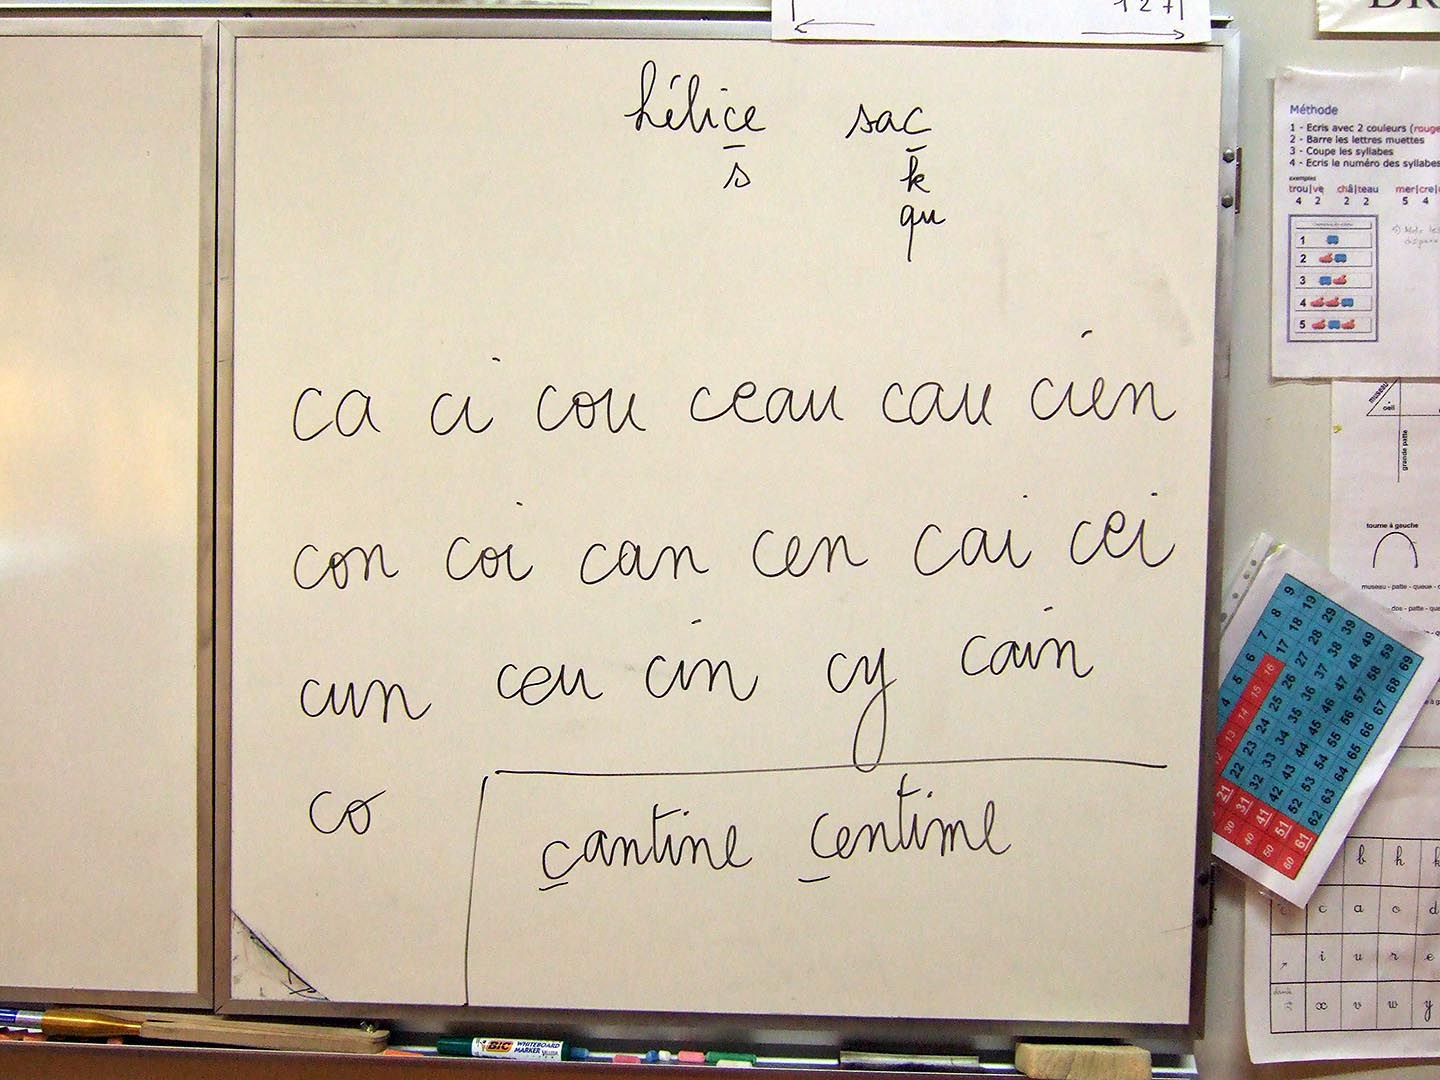 127
hélice sac
s k
qu
ca ci cou ceau cau cien
con coi can cen cai cei
cun ceu cin cy cain
co
cantine centime
BIC WHITEBOARD MARKER
Méthode
1 - Ecris avec 2 couleurs (rouge
2 - Barre les lettres muettes
3 - Coupe les syllabes
4 - Ecris le numéro des syllabes
exemples
trou|ve châ|teau mer|cre|
4 2 2 2 5 4
1
2
3
4
5
museau
oeil
grande patte
tourne à gauche
museau - patte - queue -
- dos - patte -
9 19 29 39 49 59 69
8 18 28 38 48 58 68
7 17 27 37 47 57 67
6 16 26 36 46 56 66
5 15 25 35 45 55 65
4 14 24 34 44 54 64
13 23 33 43 53 63
22 32 42 52 62
21 31 41 51 61
30 40 50 60
b h k
c a o d
i u r e
x v w y